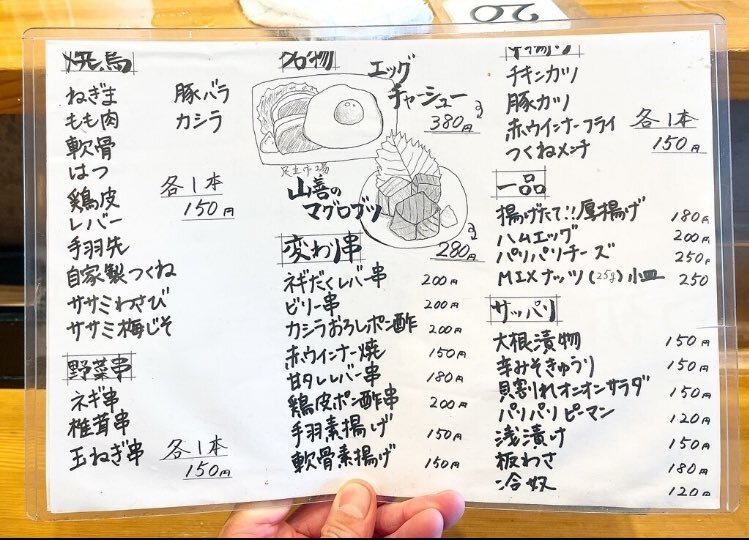 焼鳥
ねぎま 豚バラ
もも肉 カシラ
軟骨
はつ
鶏皮
レバー
各1本
150円
手羽先
自家製つくね
ササミわさび
ササミ梅じそ
野菜串
ネギ串
椎茸串
玉ねぎ串
各1本
150円
エッグ
チャーシュー
380円
足立市場
山善の
マグロブツ
280円
変わり串
ネギだくレバー串 200円
ビリー串 200円
カシラおろしポン酢 200円
赤ウインナー焼 150円
甘タレレバー串 180円
鶏皮ポン酢串 200円
手羽素揚げ 150円
軟骨素揚げ 150円
チキンカツ
豚カツ
赤ウインナーフライ
つくねメンチ
各1本
150円
一品
揚げたて!!厚揚げ 180円
ハムエッグ 200円
パリパリチーズ 250円
MIXナッツ(25g)小皿 250
サッパリ
大根漬物 150円
辛みそきゅうり 150円
貝割れオニオンサラダ 150円
パリパリピーマン 120円
浅漬け 150円
板わさ 180円
冷奴 120円
20